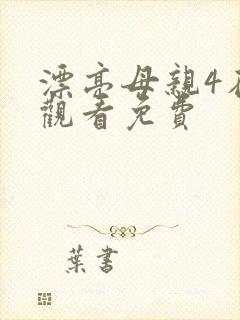 漂亮母親4在
觀看免費
葉書